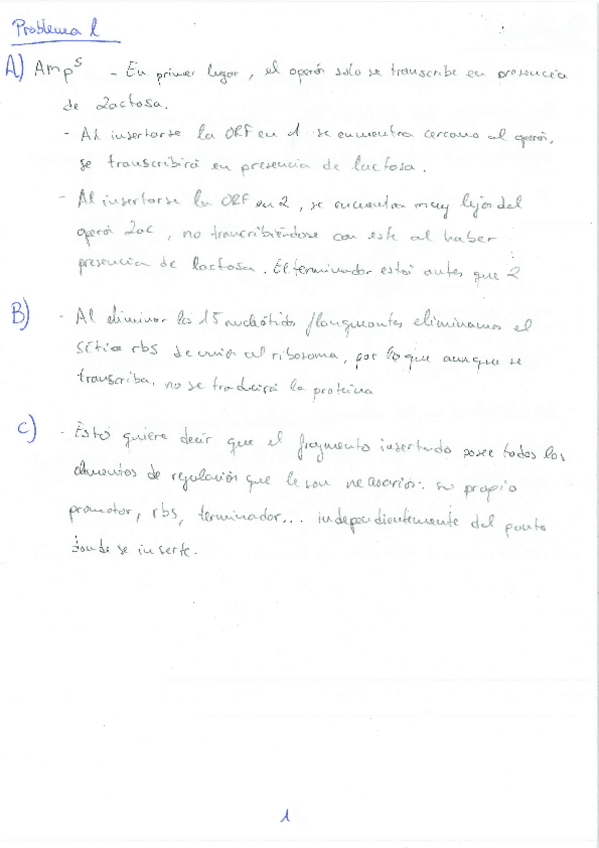 Problema 1
A) Amp^S - En primer lugar, el operón solo se transcribe en presencia
de Lactosa.
- Al insertarse la ORF en 1 se encuentra cercano al operón,
se transcribirá en presencia de lactosa.
- Al insertarse la ORF en 2, se encuentra muy lejos del
operón Lac, no transcribiéndose con este al haber
presencia de lactosa. El terminador está antes que 2
B) - Al eliminar los 15 nucleótidos flanqueantes eliminamos el
sitio rbs de unión al ribosoma, por lo que aunque se
transcriba, no se traducirá la proteína
C) - Esto quiere decir que el fragmento insertado posee todos los
elementos de regulación que le son necesarios: su propio
promotor, rbs, terminador... independientemente del punto
donde se inserte.
1